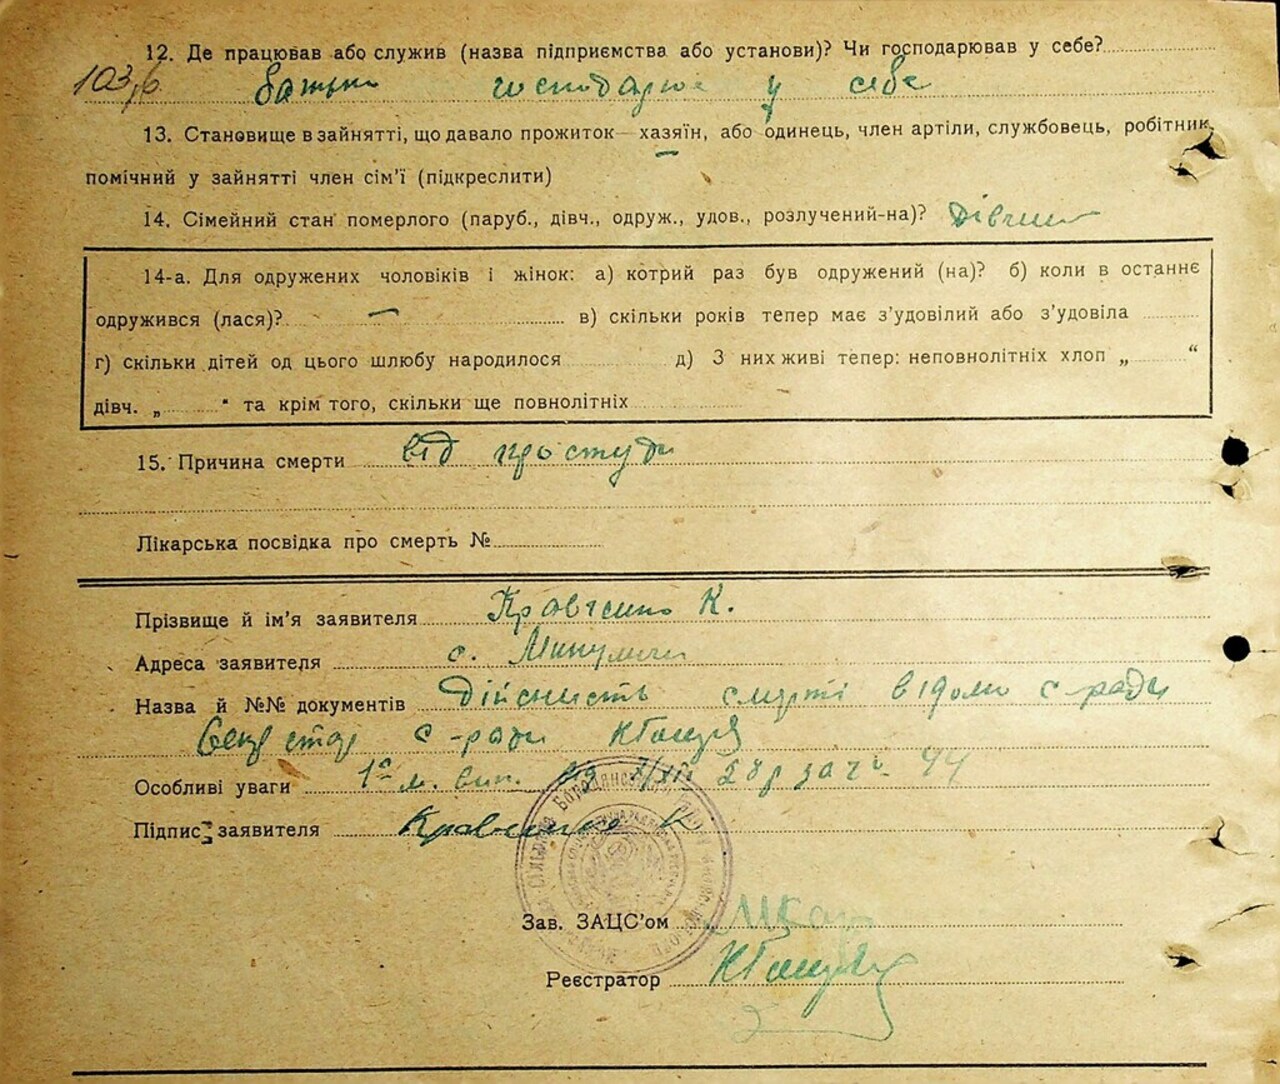 12. Де працював або служив (назва підприємства або установи)? Чи господарював у себе?
103,6. батько господарює у себе
13. Становище в зайнятті, що давало прожиток — хазяїн, або одинець, член артіли, службовець, робітник,
помічний у зайнятті член сім'ї (підкреслити)
14. Сімейний стан померлого (паруб., дівч., одруж., удов., розлучений-на)? Дівчина
14-а. Для одружених чоловіків і жінок: а) котрий раз був одружений (на)? б) коли в останнє
одружився (лася)? — в) скільки років тепер має з'удовілий або з'удовіла
г) скільки дітей од цього шлюбу народилося д) З них живі тепер: неповнолітніх хлоп „ “
дівч. „ “ та крім того, скільки ще повнолітніх
15. Причина смерти від простуди
Лікарська посвідка про смерть №
Прізвище й ім'я заявителя Кравченко К.
Адреса заявителя с. Микуличи
Назва й №№ документів Дійсність смерті відомо с-ради
с-ради
Особливі уваги
Підпис заявителя Кравченко К
Зав. ЗАЦС'ом
Реєстратор